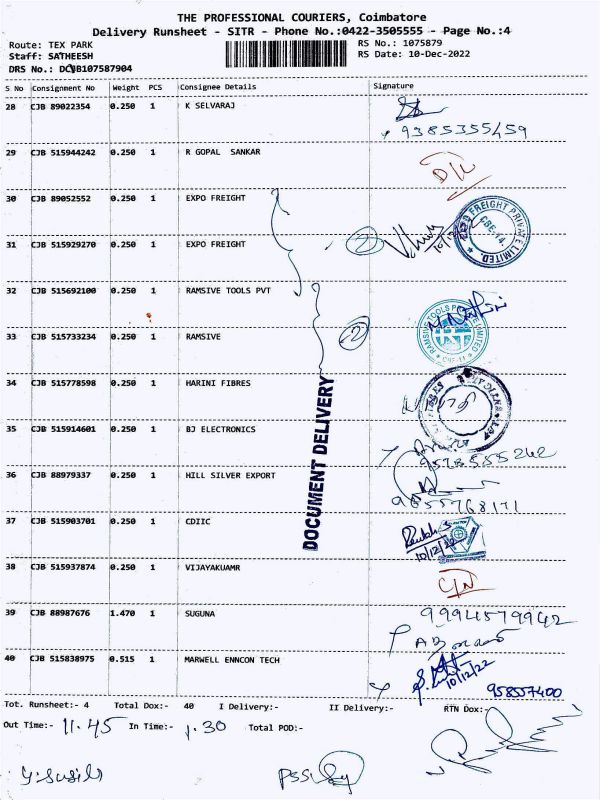 THE PROFESSIONAL COURIERS, Coimbatore
Delivery Runsheet - SITR - Phone No.:0422-3505555 - Page No.:4
Route: TEX PARK
RS No.: 1075879
Staff: SATHEESH
RS Date: 10-Dec-2022
DRS No.: DCJB107587904
S No Consignment No Weight PCS Consignee Details Signature
28 CJB 89022354 0.250 1 K SELVARAJ
9385355459
29 CJB 515944242 0.250 1 R GOPAL SANKAR D/L
30 CJB 89052552 0.250 1 EXPO FREIGHT
EXPO FREIGHT PRIVATE LIMITED. CBE-14.
31 CJB 515929270 0.250 1 EXPO FREIGHT
2
32 CJB 515692100 0.250 1 RAMSIVE TOOLS PVT
RAMSIVE TOOLS PRIVATE LIMITED CBE-14
33 CJB 515733234 0.250 1 RAMSIVE
2
34 CJB 515778598 0.250 1 HARINI FIBRES
DOCUMENT DELIVERY
35 CJB 515914601 0.250 1 BJ ELECTRONICS
9578555262
36 CJB 88979337 0.250 1 HILL SILVER EXPORT
9655768171
37 CJB 515903701 0.250 1 CDIIC
10/12/22
38 CJB 515937874 0.250 1 VIJAYAKUAMR
39 CJB 88987676 1.470 1 SUGUNA 9994579942
40 CJB 515838975 0.515 1 MARWELL ENNCON TECH
10/12/22
958557400
Tot. Runsheet:- 4 Total Dox:- 40 I Delivery:- II Delivery:- RTN Dox:-
Out Time:- 11.45 In Time:- 1.30 Total POD:-